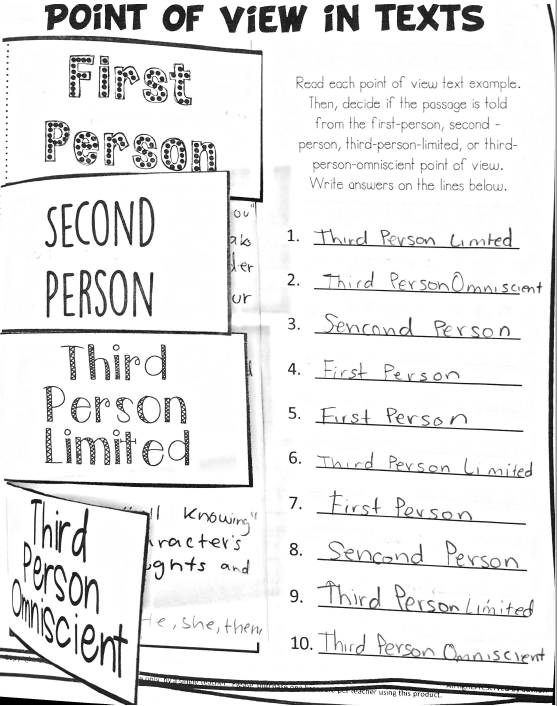 POINT OF VIEW IN TEXTS
First
Person
SECOND
PERSON
Third
Person
Limited
Third
Person
Omniscient
ou"
aks
der
ur
Knowing"
racter's
ghts and
He, she, them
Read each point of view text example.
Then, decide if the passage is told
from the first-person, second -
person, third-person-limited, or third-
person-omniscient point of view.
Write answers on the lines below.
1. Third Person Limted
2. Third Person Omniscient
3. Sencond Person
4. First Person
5. First Person
6. Third Person Limited
7. First Person
8. Sencond Person
9. Third Person Limited
10. Third Person Omniscient
per teacher using this product.